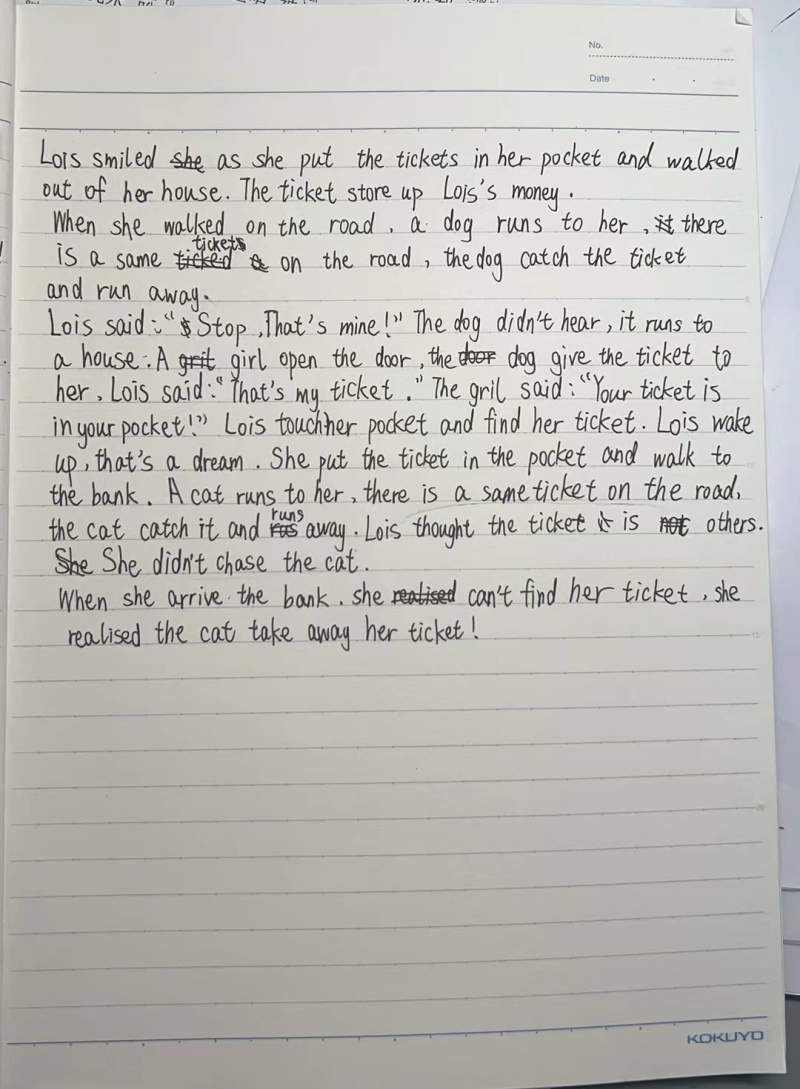 No.
Date
Lois smiled she as she put the tickets in her pocket and walked
out of her house. The ticket store up Lois's money.
When she walked on the road, a dog runs to her, it there
tickets
is a same ticked on the road, the dog catch the ticket
and run away.
Lois said: "Stop, That's mine!" The dog didn't hear, it runs to
a house. A grit girl open the door, the door dog give the ticket to
her, Lois said: "That's my ticket." The gril said: "Your ticket is
in your pocket!" Lois touch her pocket and find her ticket. Lois wake
up, that's a dream. She put the ticket in the pocket and walk to
the bank. A cat runs to her, there is a same ticket on the road,
runs
the cat catch it and away. Lois thought the ticket is others.
She She didn't chase the cat.
When she arrive the bank, she realised can't find her ticket, she
realised the cat take away her ticket!
KOKUYO